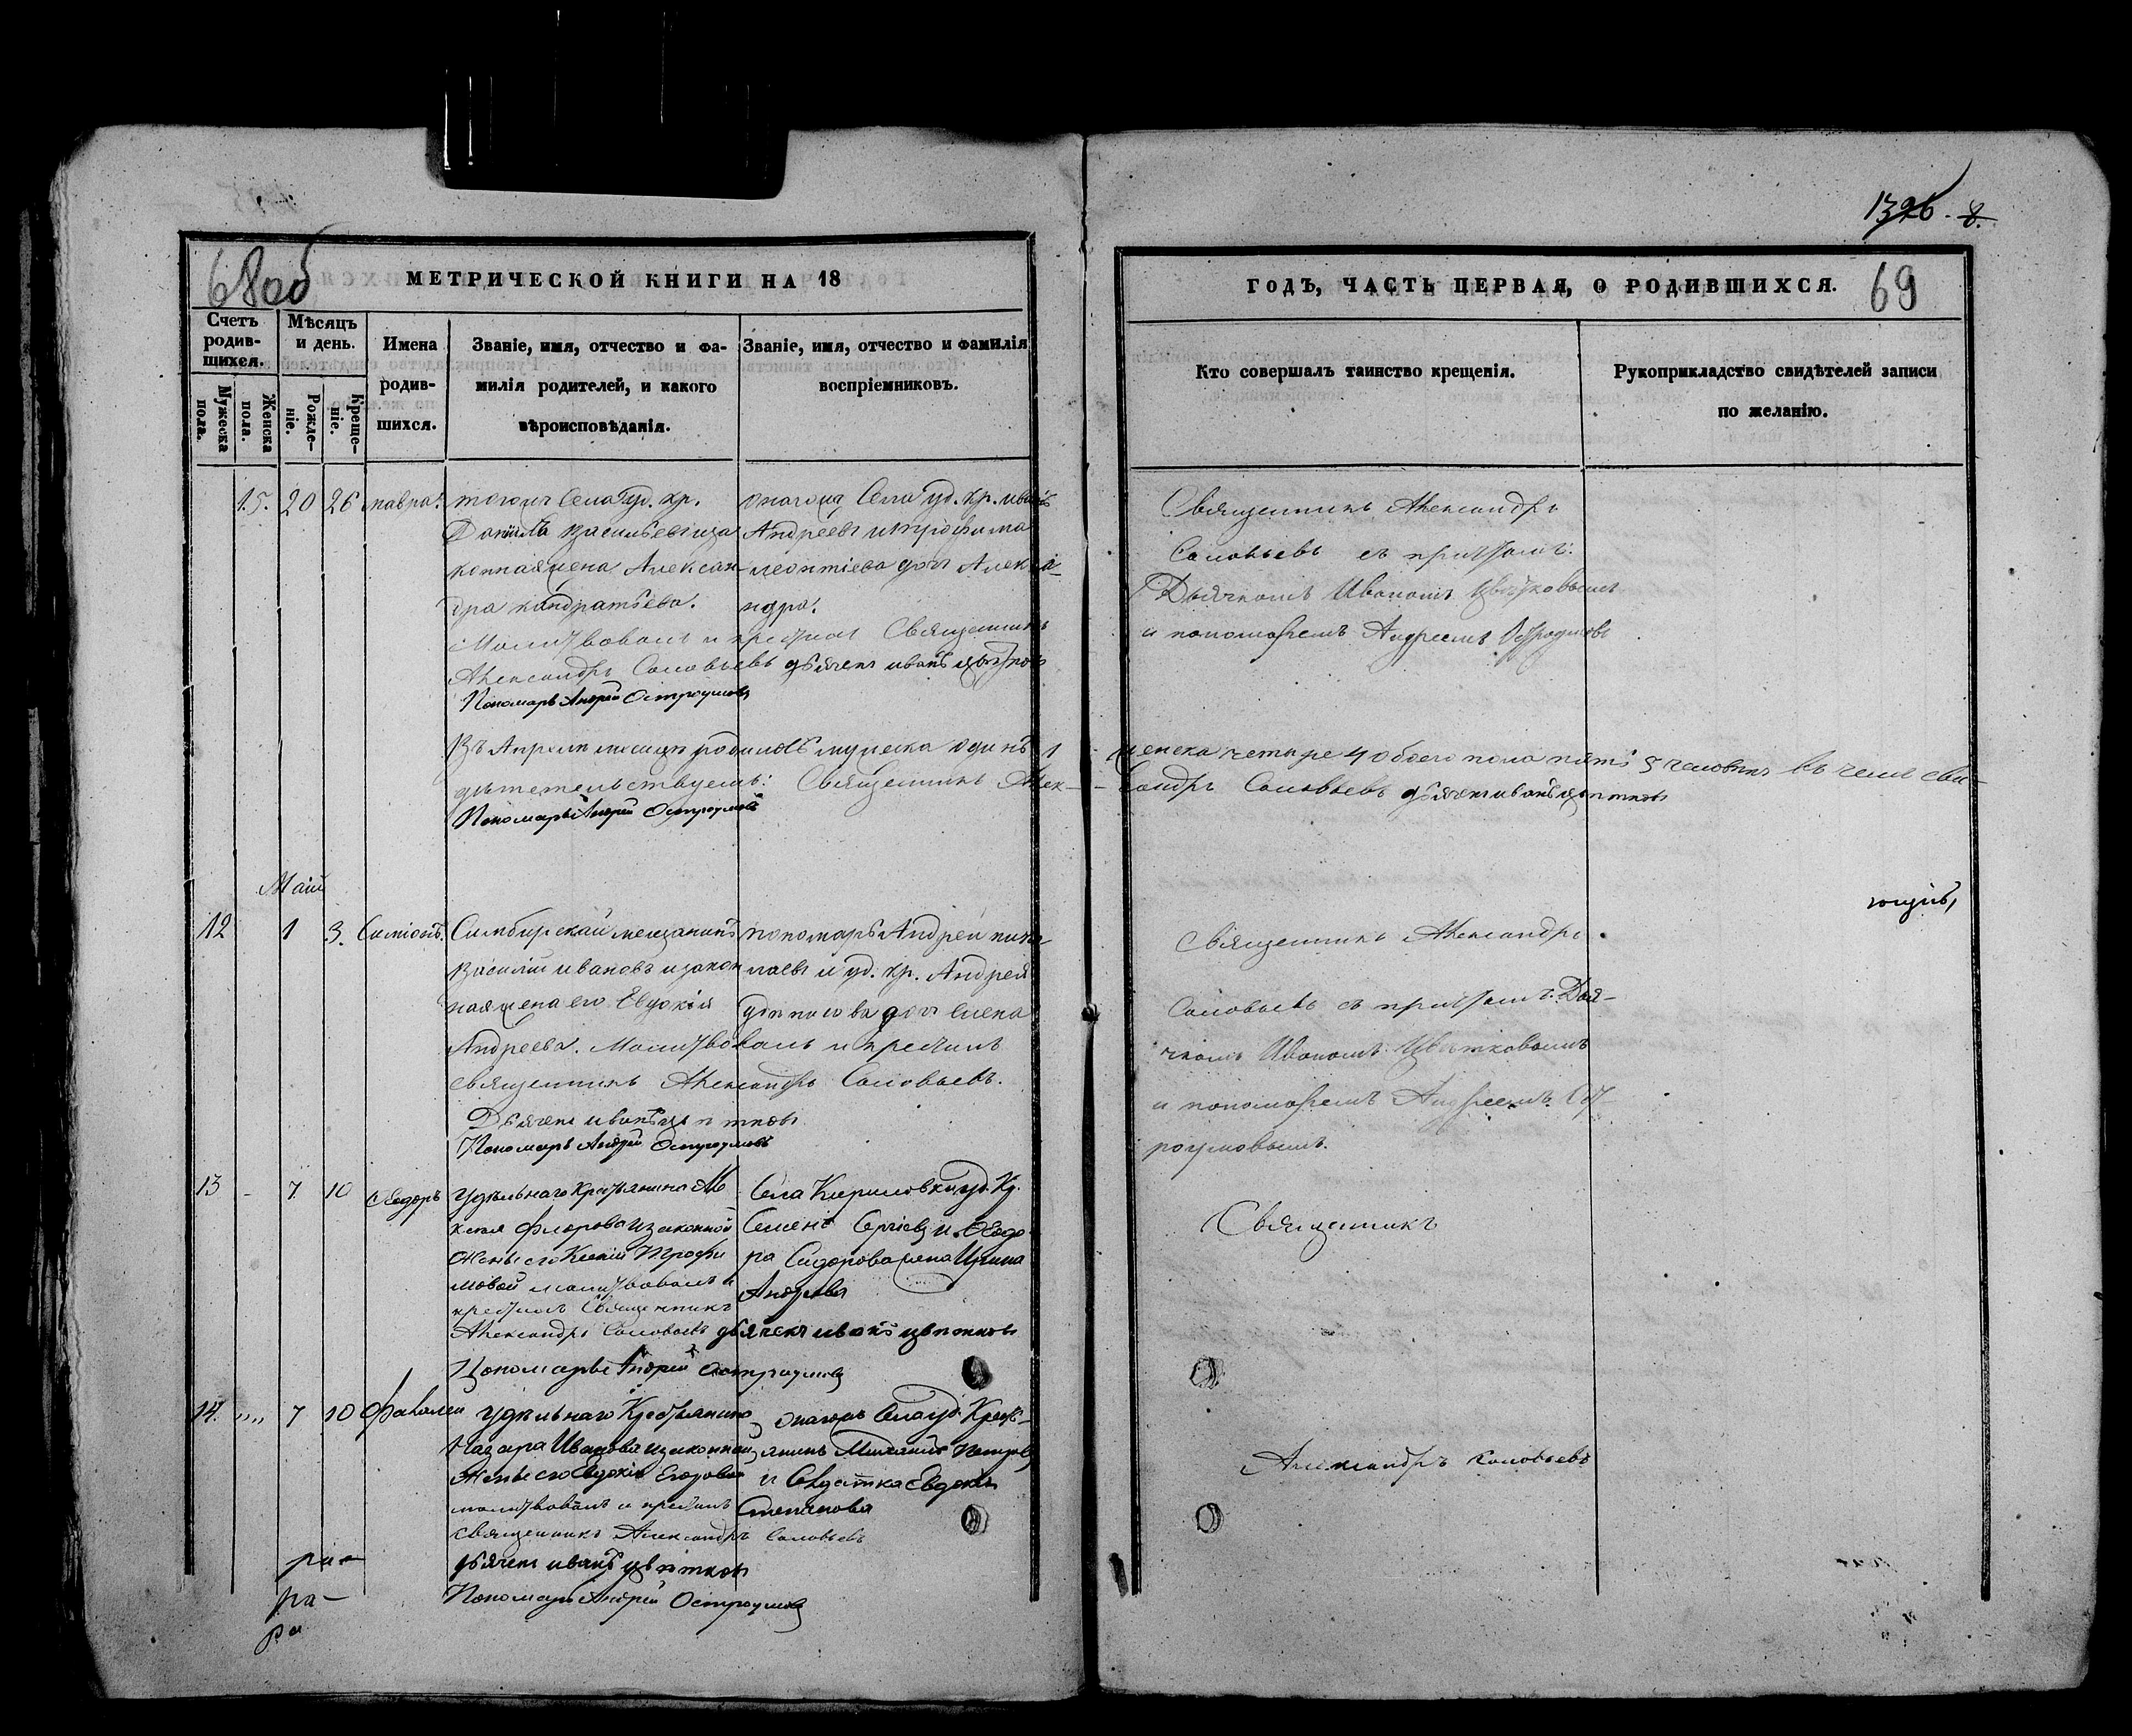 1396. 8.
68об
МЕТРИЧЕСКОЙ КНИГИ НА 18
ГОДЪ, ЧАСТЬ ПЕРВАЯ, О РОДИВШИХСЯ.
69
Счетъ родив-шихся.
Мѣсяцъ и день.
Имена родив-шихся.
Званіе, имя, отчество и фа-милія родителей, и какого вѣроисповѣданія.
Званіе, имя, отчество и фамилія воспріемниковъ.
Кто совершалъ таинство крещенія.
Рукоприкладство свидѣтелей записи по желанію.
Мужеска пола.
Женска пола.
Рожде-ніе.
Креще-ніе.
15. 20 26 мавра.
тогожъ Села уд. кр.
Данiилъ Васильевъ иза
коннаяжена Алексан-
дра кандратьева.
Молитвовалъ и крестилъ Священникъ
Александръ Соловьевъ дьячекъ иванъ цвѣтковъ
Пономарь Андрей Остроумовъ
онагожъ Села уд. кр. иванъ
Андреевъ итрофима
леонтіева дочь Алекса-
ндра.
Священникъ Александръ
Соловьевъ съ причтомъ:
Дьячкомъ Иваномъ Цвѣтковымъ
и пономаремъ Андреемъ Остроумовъ
Въ Апрелѣ месяцѣ родилось мужеска одинъ 1 женска четыре 4 обоего пола пять 5 человѣкъ въ чемъ сви-
дѣтельствуемъ: Священникъ Алек-сандръ Соловьевъ дьячекъ иванъ цвѣтковъ
Пономарь Андрей Остроумовъ
Маій
12 1 3. Симіонъ.
Симбирскай мещанинъ
Василій ивановъ изакон
наяжена его Евдокія
Андреева. Молитвовалъ и крестилъ
священникъ Александръ Соловьевъ.
Дьячекъ иванъ цвѣтковъ
Пономарь Андрей Остроумовъ
пономарь Андрей нико-
лаевъ и уд. кр. Андрея
дочь елена
Священникъ Александръ
Соловьевъ съ причтомъ: Дья-
чкомъ Иваномъ Цвѣтковымъ
и пономаремъ Андреемъ Ост
роумовымъ.
13 - 7 10 Ѳеодоръ
Удѣльнаго Крестьянина Ма
ксима Флорова изаконной
Жены его Ксеніи Трофи
мовой молитвовалъ и
крестилъ Священникъ
Александръ Соловьевъ дьячекъ иванъ цвѣтковъ
Пономарь Андрей Остроумовъ
Села Кириловки уд. Кр.
Семенъ Сергіевъ и Ѳеодо
ра Сидорова жена Ирина
Андреева
Священникъ
14. 7 10 Фалалей
Удѣльнаго Крестьянина
Назара Иванова изаконной
Жены его Евдокіи Егоровой
молитвовалъ и крестилъ
священникъ Александръ Соловьевъ
дьячекъ иванъ цвѣтковъ
Пономарь Андрей Остроумовъ
онагожъ Села уд. Кресть-
янинъ Михаилъ Петровъ
и Евдокія
Степанова
Александръ Соловьевъ
ра-
ра-
ра